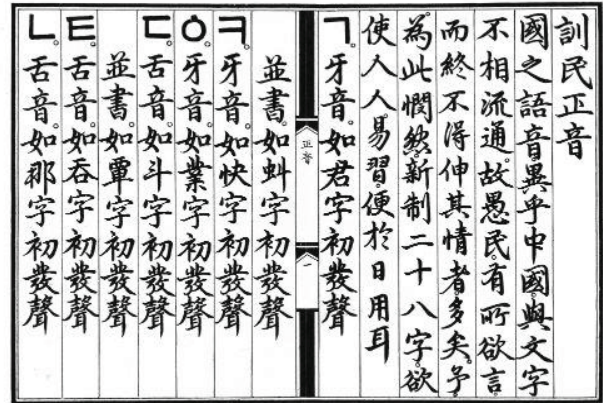 訓民正音
國之語音異乎中國。與文字
不相流通。故愚民。有所欲言。
而終不得伸其情者多矣。予。
為此憫然。新制二十八字。欲
使人人。易習。便於日用耳
ㄱ。牙音。如君字初發聲
正音
一
並書。如虯字初發聲
ㅋ。牙音。如快字初發聲
ㆁ。牙音。如業字初發聲
ㄷ。舌音。如斗字初發聲
並書。如覃字初發聲
ㅌ。舌音。如呑字初發聲
ㄴ。舌音。如那字初發聲